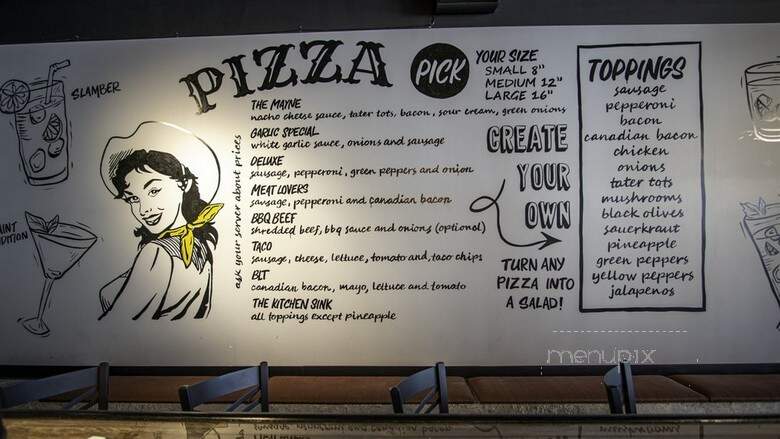 PIZZA
PICK
YOUR SIZE
SMALL 8"
MEDIUM 12"
LARGE 16"
SLAMBER
MINT
ask your server about prices
THE MAYNE
nacho cheese sauce, tater tots, bacon, sour cream, green onions
GARLIC SPECIAL
white garlic sauce, onions and sausage
DELUXE
sausage, pepperoni, green peppers and onion
MEAT LOVERS
sausage, pepperoni and canadian bacon
BBQ BEEF
shredded beef, bbq sauce and onions (optional)
TACO
sausage, cheese, lettuce, tomato and taco chips
BLT
canadian bacon, mayo, lettuce and tomato
THE KITCHEN SINK
all toppings except pineapple
CREATE
YOUR
OWN
TURN ANY
PIZZA INTO
A SALAD!
TOPPINGS
sausage
pepperoni
bacon
canadian bacon
chicken
onions
tater tots
mushrooms
black olives
sauerkraut
pineapple
green peppers
yellow peppers
jalapenos
menupix